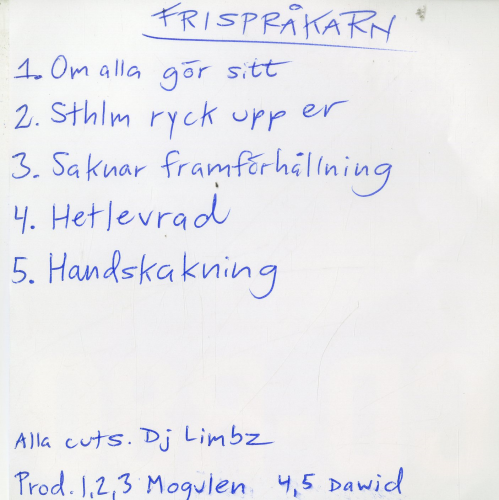 FRISPRÅKARN
1. Om alla gör sitt
2. Sthlm ryck upp er
3. Saknar framförhållning
4. Hetlevrad
5. Handskakning
Alla cuts. Dj Limbz
Prod. 1,2,3 Mogulen 4,5 Dawid